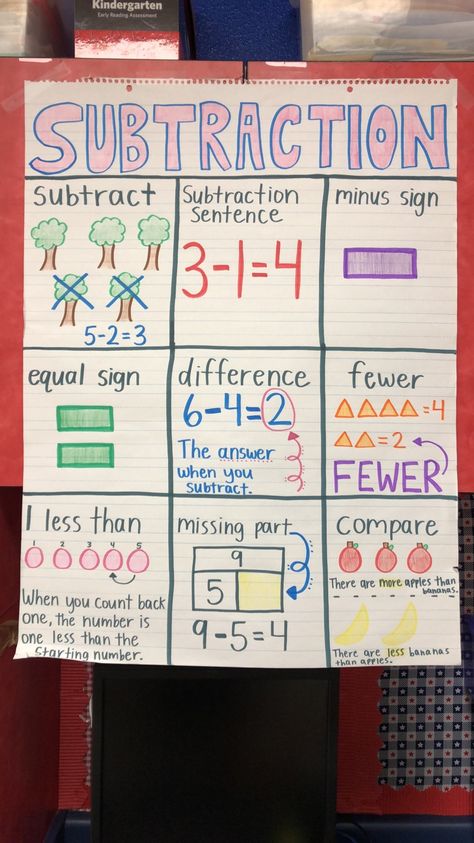 Kindergarten
Early Reading Assessment
SUBTRACTION
subtract
5-2=3
Subtraction
Sentence
3-1=4
minus sign
equal sign
difference
6-4=2
The answer
when you
subtract.
fewer
=4
=2
FEWER
1 less than
1 2 3 4 5
When you count back
one, the number is
one less than the
starting number.
missing part
9
5
9-5=4
compare
There are more apples than
bananas.
There are less bananas
than apples.